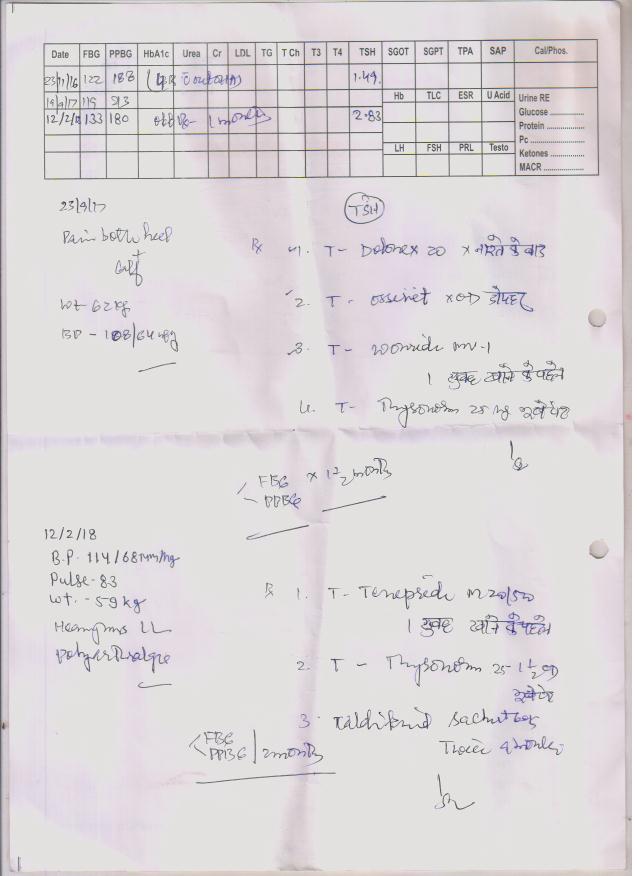 Date FBG PPBG HbA1c Urea Cr LDL TG T Ch T3 T4 TSH SGOT SGPT TPA SAP Cal/Phos.
23/11/16 122 188 1.49
19/9/17 119 213
12/2/18 133 180 1 months 2.83
Hb TLC ESR U Acid
LH FSH PRL Testo
Urine RE
Glucose
Protein
Pc
Ketones
MACR
23/9/17
TSH
Pain both heel
+
Calf
Wt 62 kg
BP - 108/64
Rx 1. T- Dolonex 20 x नाश्ते के बाद
2. T- x OD दोपहर
3. T- MV-1
1 सुबह खाने के पहले
4. T- Thyronorm 25 खाली पेट
FBG
PPBG x 1 1/2 months
12/2/18
B.P. 114/68 mm/Hg
Pulse - 83
Wt. - 59 kg
Heaviness LL
Polyarthralgia
Rx 1. T- Tenepride M 20/500
1 सुबह खाने के पहले
2. T - Thyronorm 25- 1 1/2 OD
खाली पेट
3. sachet 60K
Twice a month
FBG
PPBG 2 months